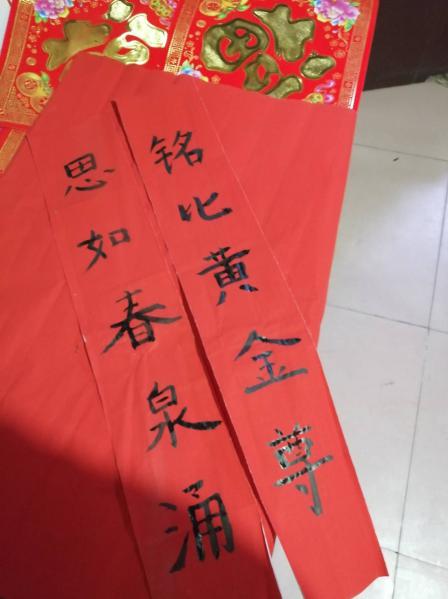 铭比黄金尊
思如春泉涌